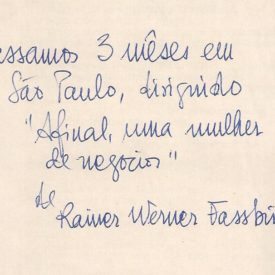 essamos 3 mêses em
São Paulo, dirigindo
"Afinal, uma mulher
de negocios"
de
Rainer Werner Fassbi